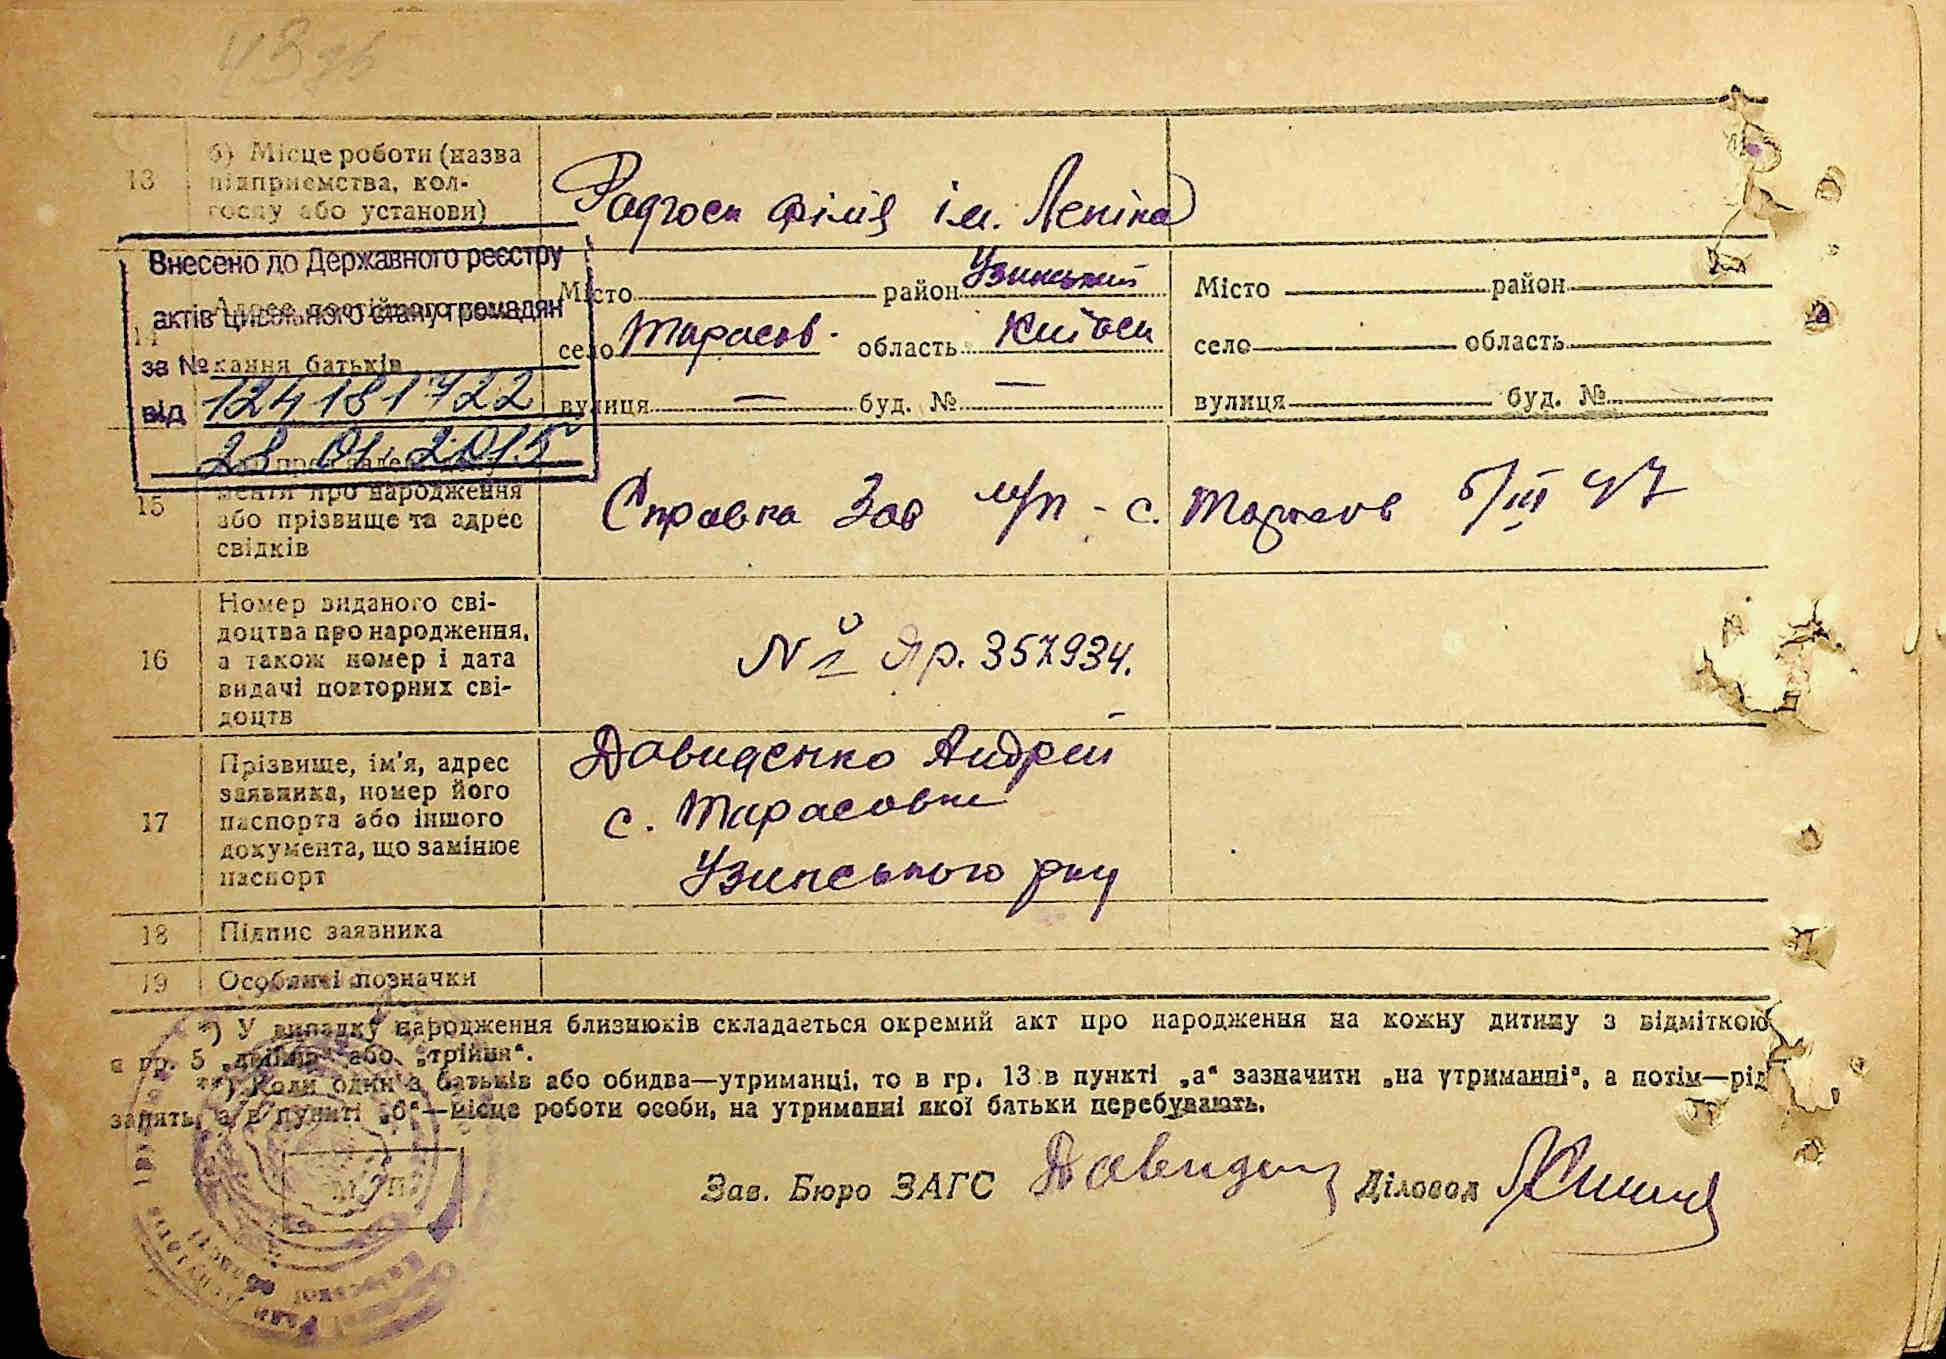 13
б) Місце роботи (назва
підприємства, кол-
госпу або установи)
Радгосп філія ім. Леніна
Внесено до Державного реєстру
актів цивільного стану громадян
за №
від 124181722
28 01. 2015
14
кання батьків
Місто район Узинський
село Тарасов. область Київськ
вулиця — буд. № —
Місто район
село область
вулиця буд. №
15
мента про народження
або прізвище та адрес
свідків
Справка Зав - с. Тарасов 5/III 47
16
Номер виданого сві-
доцтва про народження,
а також номер і дата
видачі повторних сві-
доцтв
№ 357934.
17
Прізвище, ім'я, адрес
заявника, номер його
паспорта або іншого
документа, що замінює
паспорт
Давиденко Андрей
с. Тарасовки
Узинського рну
18
Підпис заявника
19
Особливі позначки
*) У випадку народження близнюків складається окремий акт про народження на кожну дитину з відміткою
в гр. 5 „двійня“ або „трійня“.
**) Коли один з батьків або обидва—утриманці, то в гр. 13 в пункті „а“ зазначити „на утриманні“, а потім—рід
занять, а в пункті „б“—місце роботи особи, на утриманні якої батьки перебувають.
Зав. Бюро ЗАГС Діловод